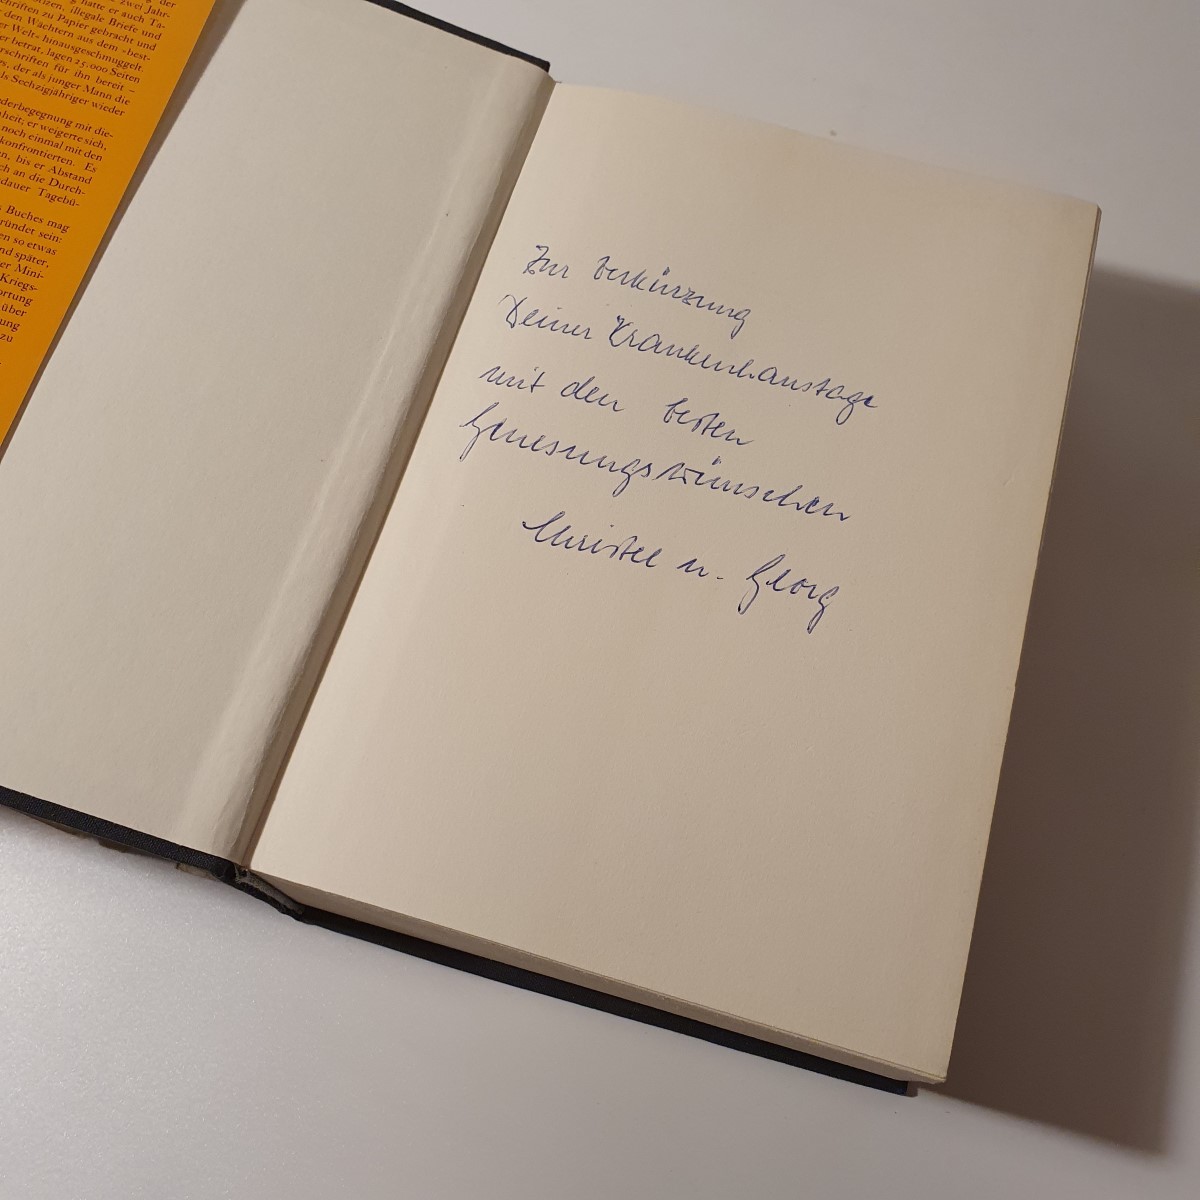 der
zwei Jahr-
hatte er auch Ta-
otizen, illegale Briefe und
chriften zu Papier gebracht und
den Wächtern aus dem »best-
er Welt« hinausgeschmuggelt.
er betrat, lagen 25.000 Seiten
rschriften für ihn bereit –
s, der als junger Mann die
ls Sechzigjähriger wieder
ederbegegnung mit die-
nheit; er weigerte sich,
noch einmal mit den
konfrontierten. Es
n, bis er Abstand
ch an die Durch-
dauer Tagebü-
s Buches mag
ründet sein:
en so etwas
nd später,
er Mini-
Kriegs-
ortung
über
ung
zu
Zur Verkürzung
Deiner Krankenhaustage
mit den besten
Genesungswünschen
Christel u. Georg